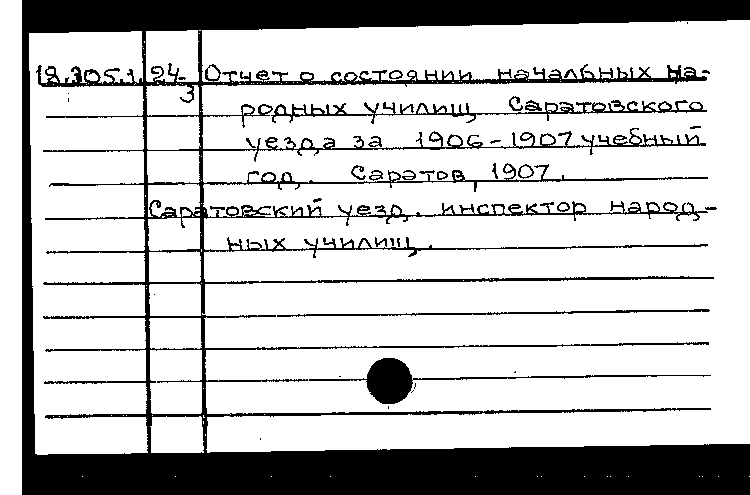 18.305.1.24 Отчет о состоянии начальных на-
3
родных училищ Саратовского
уезда за 1906-1907 учебный
год. Саратов, 1907.
Саратовский уезд. инспектор народ-
ных училищ.